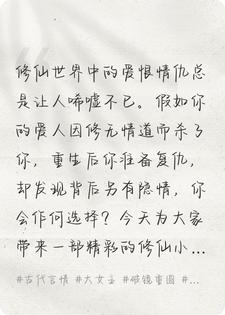 修仙世界中的爱恨情仇总
是让人唏嘘不已。假如你
的爱人因修无情道而杀了
你，重生后你准备复仇，
却发现背后另有隐情，你
会作何选择？今天为大家
带来一部精彩的修仙小...
#古代言情 #大女主 #破镜重圆 #...